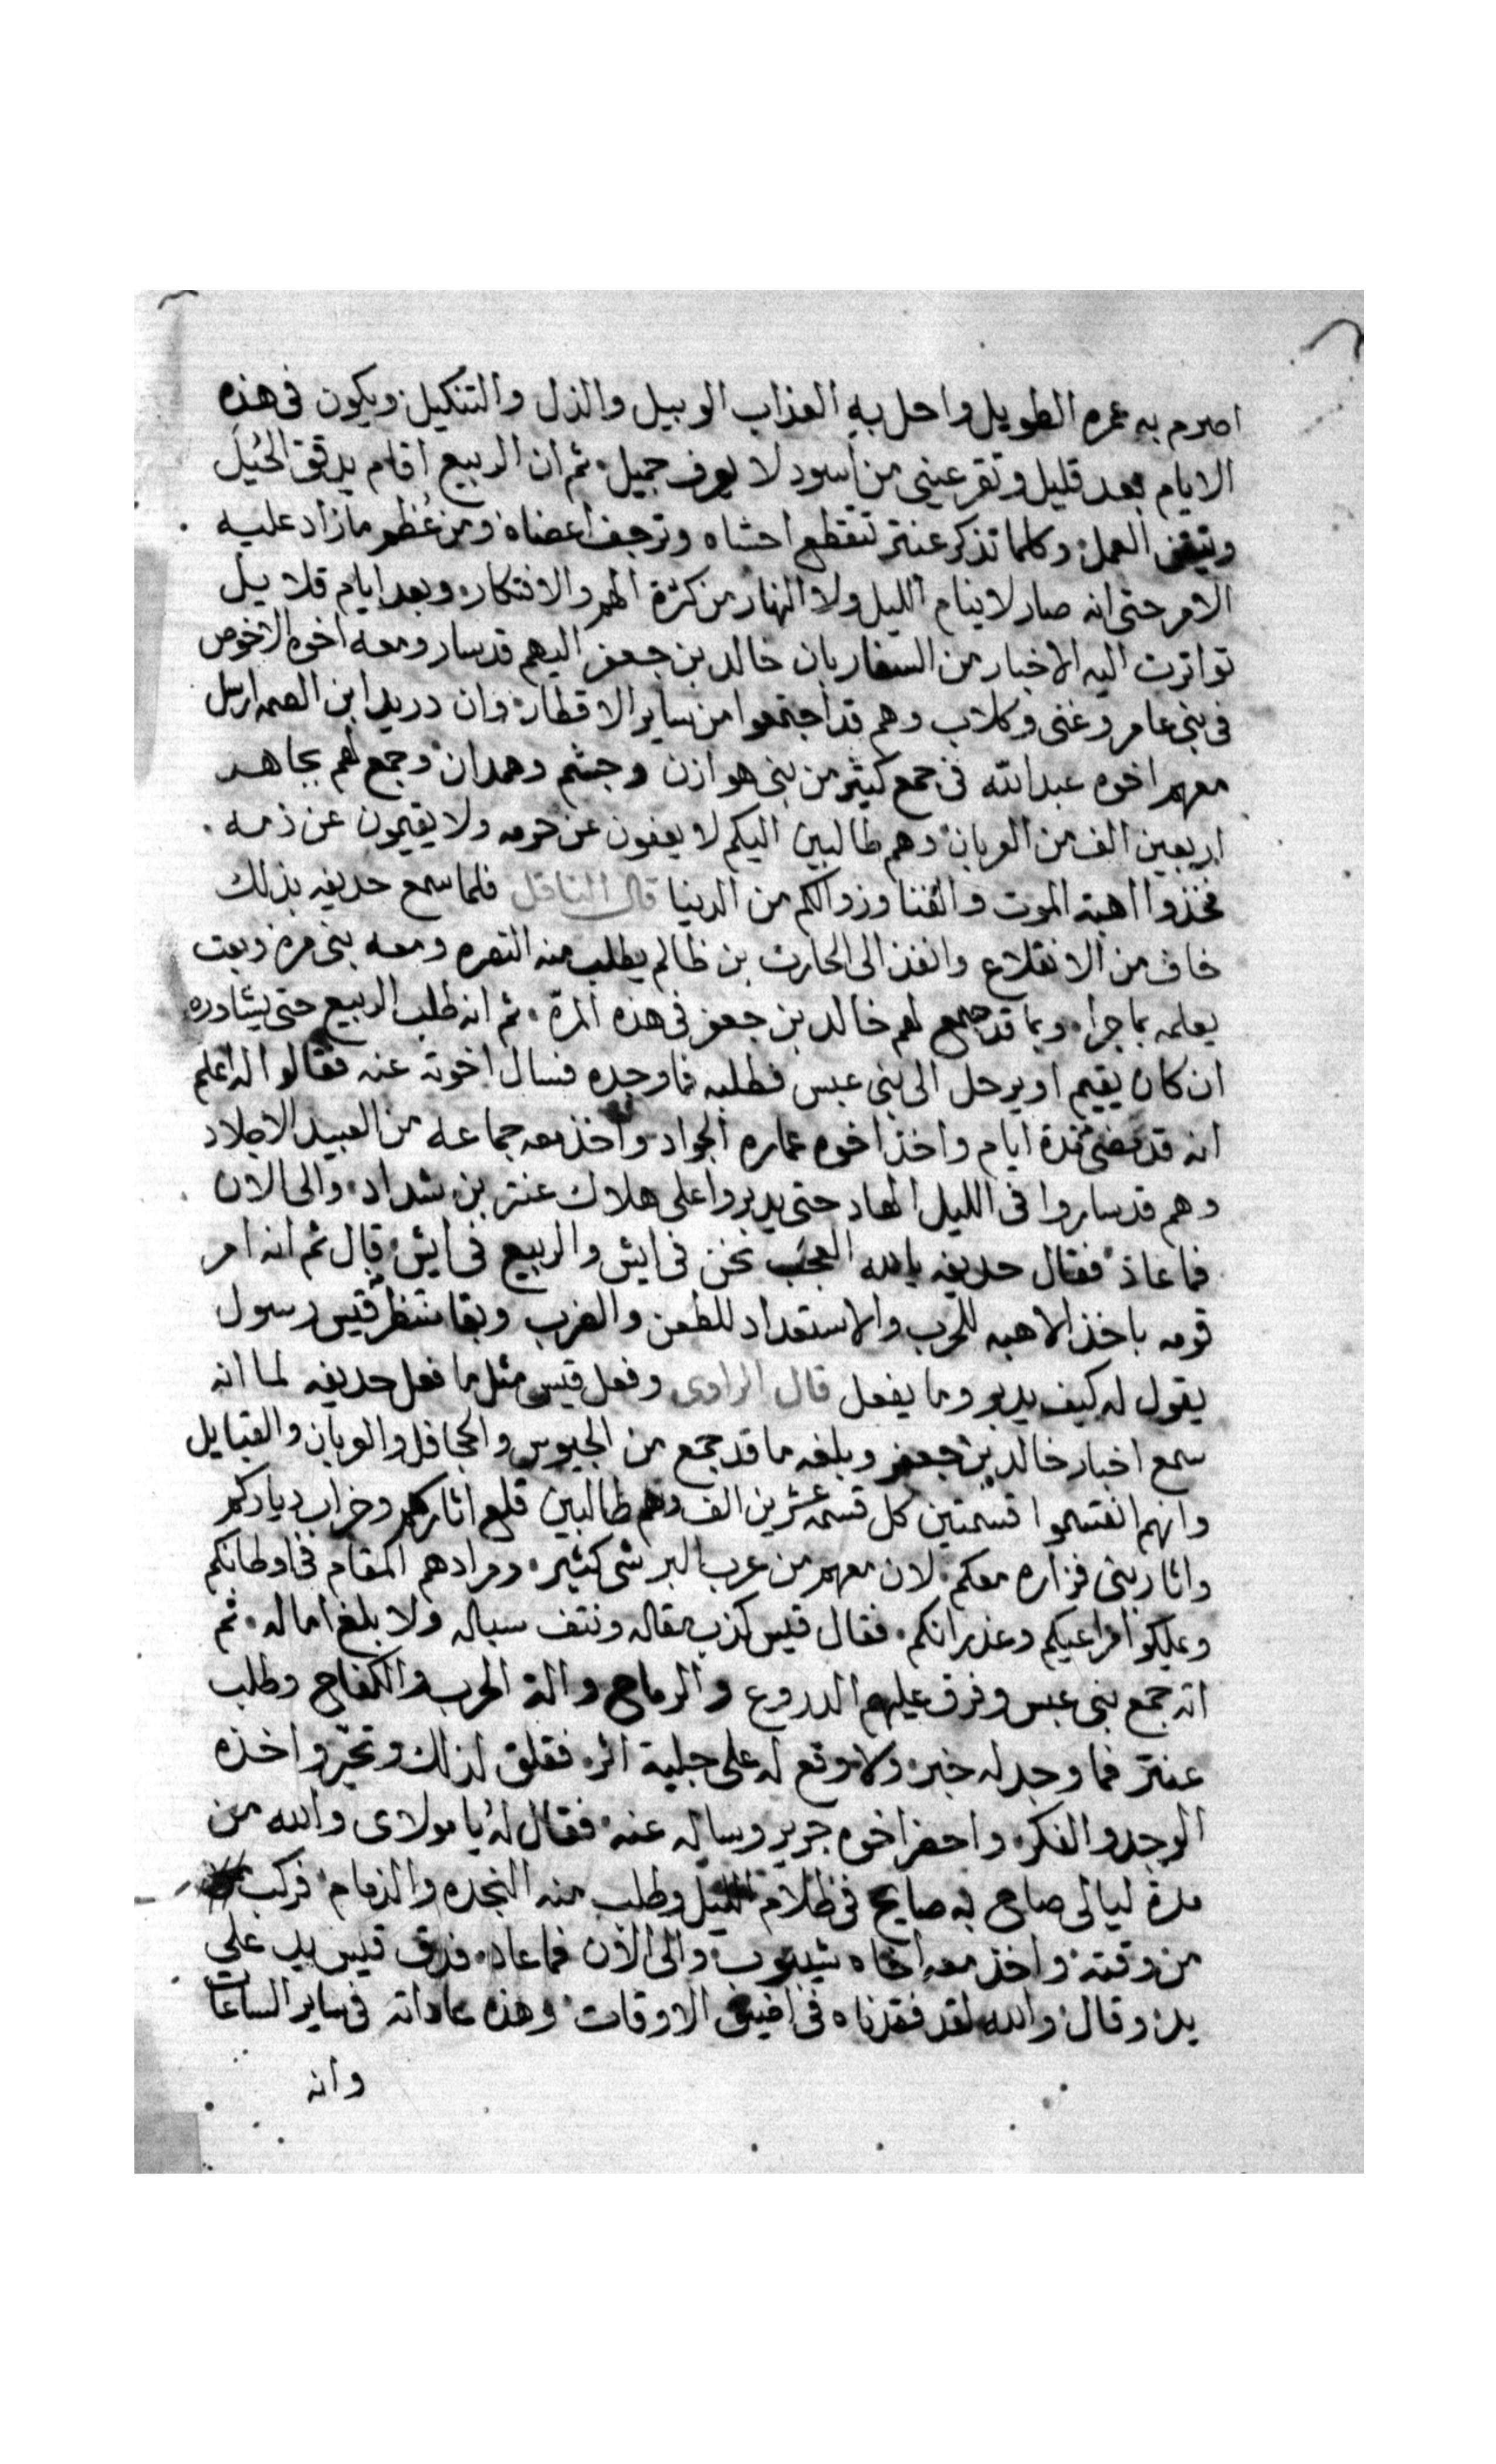 اصرم به عمره الطويل واحل به العذاب الوبيل والذل والتنكيل ويكون فى هذه
الايام بعد قليل وتقر عينى من اسود لا يعرف جميل ثم ان الربيع اقام يدقق الحيل
ويتقن العمل وكلما تذكر عنتر تتقطع احشاه وترجف اعضاه ومن عظم مازاد عليه
الامر حتى انه صار لا ينام الليل ولا النهار من كثرة الهم والافتكار وبعد ايام قلايل
تواترت اليه الاخبار من السفار بان خالد بن جعفر اليهم قد سار ومعه اخوه الاخوص
فى بنى عامر وغنى وكلاب وهم قد اجتمعوا من ساير الاقطار وان دريد ابن الصمه ارسل
معهم اخوه عبد الله فى جمع كثير من بنى هوازن وجشم وهمدان وجمع لهم بجاهد
اربعين الف من العربان وهم طالبين اليكم لا يعفون عن حرمه ولا يقيمون عن ذمه
فخذوا اهبة الموت والفنا وزوالكم من الدنيا قال الناقل فلما سمع حديفه بذلك
خاف من الانقلاع وانفذ الى الحارث بن ظالم يطلب منه النصره ومعه بنى مره وبعت
يعلمه بما جرا وبما قد جمع لهم خالد بن جعفر فى هذه المرة ثم انه طلب الربيع حتى يشاوره
ان كان يقيم او يرحل الى بنى عبس فطلبه فما وجده فسال اخوته عنه فقالوا له اعلم
انه قد مضى مدة ايام واخذ اخوه عماره الجواد واخذ معه جماعه من العبيد الاجلاد
وهم قد ساروا فى الليل الهاد حتى يدبروا على هلاك عنتر بن شداد والى الان
فما عاد فقال حديفه يالله العجب نحن فى ايش والربيع فى ايش قال ثم انه امر
قومه باخذ الاهبه للحرب والاستعداد للطعن والضرب وبقا منتظر قيس رسول
يقول له كيف يدبر وما يفعل قال الراوى وفعل قيس مثل ما فعل حديفه لما انه
سمع اخبار خالد بن جعفر وبلغه ما قد جمع من الجيوس والجحافل والعربان والقبايل
وانهم انقسموا قسمتين كل قسمه عشرين الف وهم طالبين قلع اثاركم وخراب دياركم
واثار بنى فزاره معكم لان معهم من عرب البر شى كثير ومرادهم المقام فى اوطانكم
وعلكوا امراعيكم وغدرانكم فقال قيس كذب مقاله ونتف سباله ولا بلغ اماله ثم
انه جمع بنى عبس وفرق عليهم الدروع والرماح والة الحرب والكفاح وطلب
عنتر فما وجد له خبر ولا وقع له على جلية اثر فقلق لذلك وتحير واخذه
الوجد والفكر واحضر اخوه جرير وساله عنه فقال له يا مولاى والله من
مدة ليالى صاح به صايح فى ظلام الليل وطلب منه النجده والذمام فركب
من وقته واخذ معه اخاه شيبوب والى الان فما عاد فدق قيس يد على
يد وقال والله لقد فقدناه فى اضيق الاوقات وهذه عاداته فى ساير الساعات
وانه